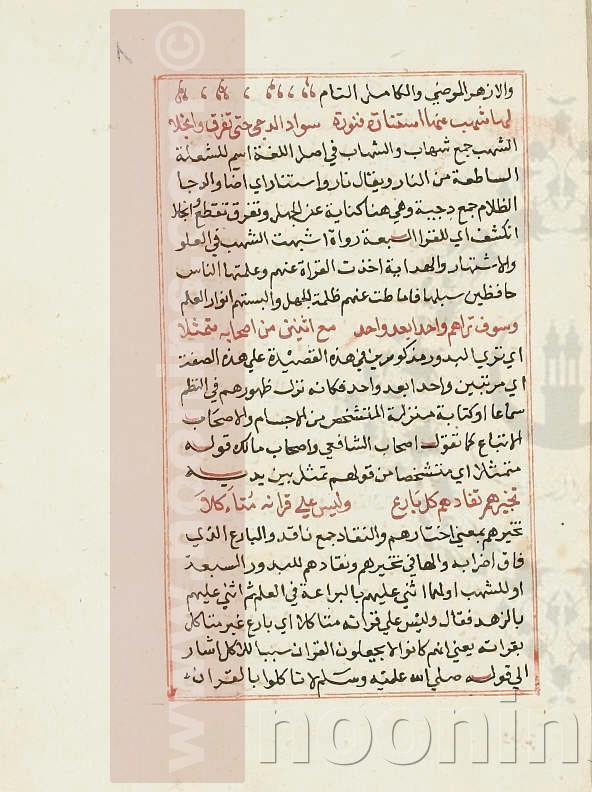 والازهر الموضي والكامل التام
لها شهب عنها استنارت فنورت سواد الدجى حتى تفرق وانجلا
الشهب جمع شهاب والشهاب في اصل اللغة اسم للشعلة
الساطعة من النار ويقال نار واستنار اي اضا والدجا
الظلام جمع دجية وهي هنا كناية عن الجهل وتفرق تقطع وانجلا
انكشف اي للقرا السبعة رواة اشبهت الشهب في العلو
والاشتهار والهداية اخذت القراة عنهم وعلمتها الناس
حافظين سبلها فاماطت عنهم ظلمة الجهل والبستهم انوار العلم
وسوف تراهم واحدا بعد واحد مع اثنين من اصحابه متمثلا
اي تري البدور مذكورين في هذه القصيدة علي هذه الصفة
اي مرتبين واحدا بعد واحد فكانه نزل ظهورهم في النظم
سماعا او كتابة منزلة المتشخص من الاجسام والاصحاب
الاتباع كما تقول اصحاب الشافعي واصحاب مالك قوله
متمثلا اي متشخصا من قولهم تمثل بين يديه
تخيرهم نقادهم كل بارع وليس علي قرانه متاكلا
تخيرهم بمعني اختارهم والنقاد جمع ناقد والبارع الذي
فاق اضرابه والها في تخيرهم ونقادهم للبدور السبعة
او للشهب او لهما اثني عليهم بالبراعة في العلم ثم اثني عليهم
بالزهد فقال وليس علي قرانه متاكلا اي بارع غير متاكل
بقرانه يعني انهم كانوا لا يجعلون القران سببا للاكل اشار
الي قوله صلي الله عليه وسلم لا تاكلوا بالقران
www.noonin
©
noonin